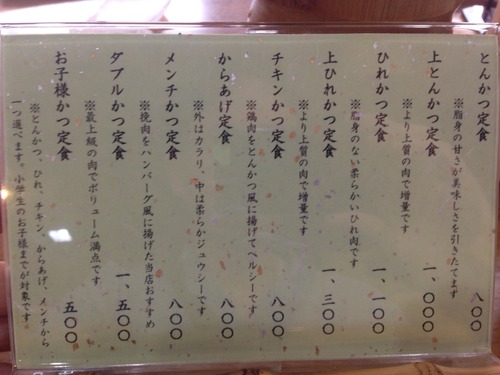 とんかつ定食 八〇〇
※脂身の甘さが美味しさを引きたてます
上とんかつ定食 一、〇〇〇
※より上質の肉で増量です
ひれかつ定食 一、一〇〇
※脂身のない柔らかいひれ肉です
上ひれかつ定食 一、三〇〇
※より上質の肉で増量です
チキンかつ定食 八〇〇
※鶏肉をとんかつ風に揚げてヘルシーです
からあげ定食 八〇〇
※外はカラリ、中は柔らかジュウシーです
メンチかつ定食 八〇〇
※挽肉をハンバーグ風に揚げた当店おすすめ
ダブルかつ定食 一、五〇〇
※最上級の肉でボリューム満点です
お子様かつ定食 五〇〇
※とんかつ、ひれ、チキン、からあげ、メンチから
一つ選べます。小学生のお子様までが対象です。